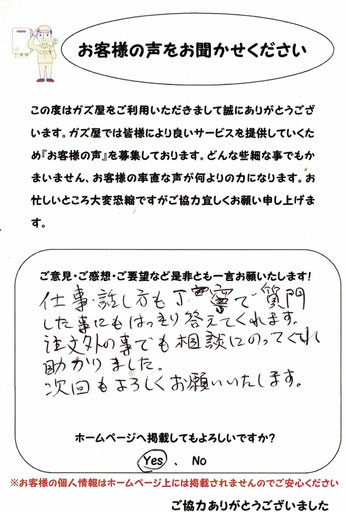 お客様の声をお聞かせください
この度はガズ屋をご利用いただきまして誠にありがとうござ
います。ガズ屋では皆様により良いサービスを提供していくた
め『お客様の声』を募集しております。どんな些細な事でもか
まいません、お客様の率直な声が何よりの力になります。お
忙しいところ大変恐縮ですがご協力宜しくお願い申し上げま
す。
ご意見・ご感想・ご要望など是非とも一言お願いたします!
仕事・話し方も丁寧で質問
した事にもはっきり答えてくれます。
注文外の事でも相談にのってくれ
助かりました。
次回もよろしくお願いいたします。
ホームページへ掲載してもよろしいですか?
Yes 、 No
※お客様の個人情報はホームページ上には掲載されませんのでご安心ください
ご協力ありがとうございました